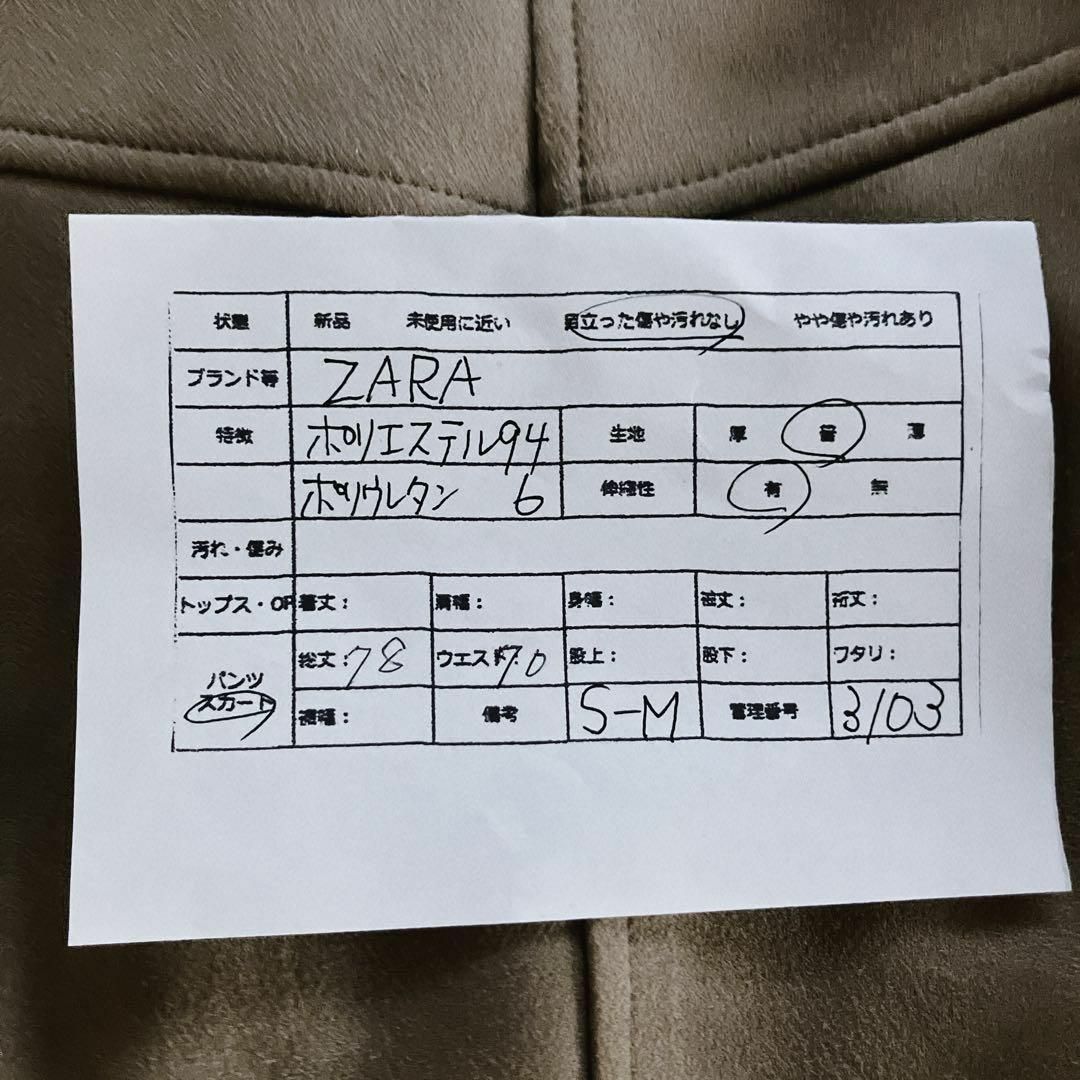 状態 新品 未使用に近い 目立った傷や汚れなし やや傷や汚れあり
ブランド等 ZARA
特徴 ポリエステル94 生地 厚 普 薄
ポリウレタン 6 伸縮性 有 無
汚れ・傷み
トップス・OP 着丈： 肩幅： 身幅： 袖丈： 裄丈：
パンツ スカート 総丈：78 ウエスト：70 股上： 股下： ワタリ：
裾幅： 備考 S-M 管理番号 3103